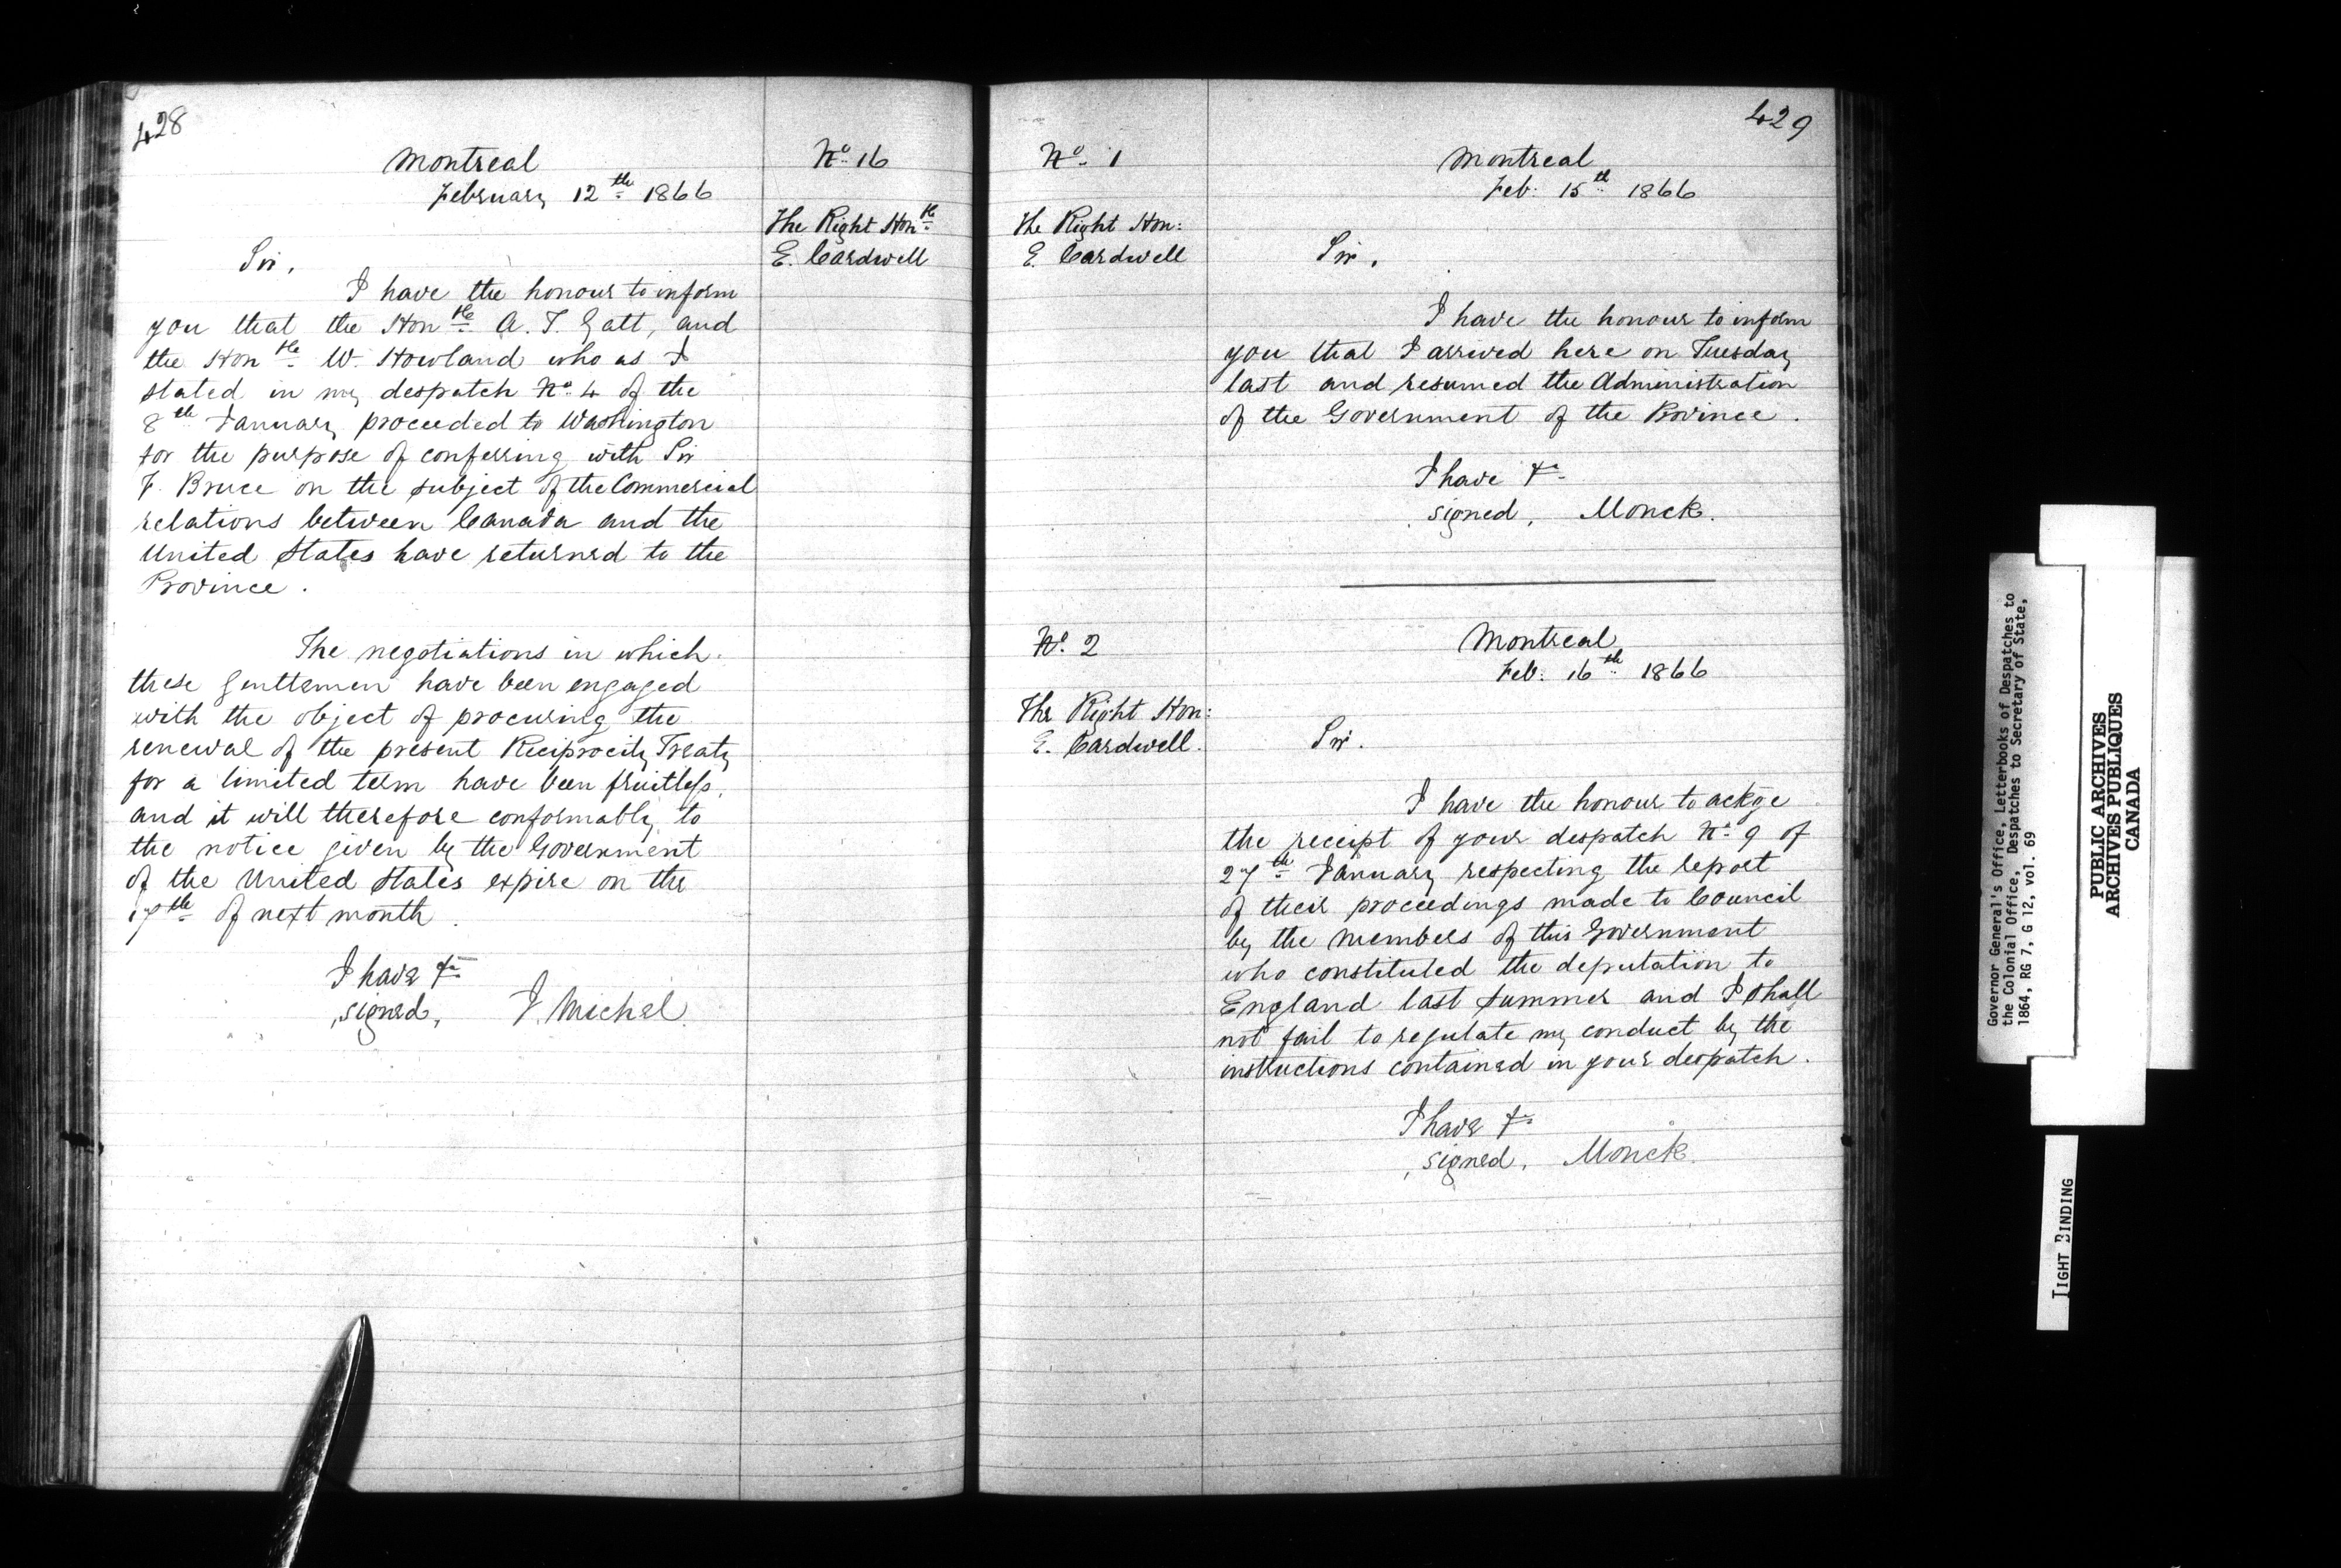 428
Montreal
February 12th 1866
No. 16
The Right Honble
E. Cardwell
Sir,
I have the honour to inform
you that the Honble A. T. Galt, and
the Honble W. Howland who as I
stated in my despatch No. 4 of the
8th January proceeded to Washington
for the purpose of conferring with Sir
F. Bruce on the subject of the Commercial
relations between Canada and the
United States have returned to the
Province.
The negotiations in which
these gentlemen have been engaged
with the object of procuring the
renewal of the present Reciprocity Treaty
for a limited term have been fruitless,
and it will therefore conformably to
the notice given by the Government
of the United States expire on the
17th of next month.
I have &c
signed, J. Michel.
429
No. 1
The Right Hon:
E. Cardwell
Montreal
Feb: 15th 1866
Sir,
I have the honour to inform
you that I arrived here on Tuesday
last and resumed the Administration
of the Government of the Province.
I have &c
signed, Monck.
No. 2
The Right Hon:
E. Cardwell.
Montreal
Feb: 16th 1866
Sir.
I have the honour to ackge
the receipt of your despatch No. 9 of
27th January respecting the report
of their proceedings made to Council
by the Members of this Government
who constituted the deputation to
England last summer and I shall
not fail to regulate my conduct by the
instructions contained in your despatch.
I have &c
signed, Monck.
Governor General's Office, Letterbooks of Despatches to
the Colonial Office, Despatches to Secretary of State,
1864, RG 7, G 12, vol. 69
PUBLIC ARCHIVES
ARCHIVES PUBLIQUES
CANADA
TIGHT BINDING